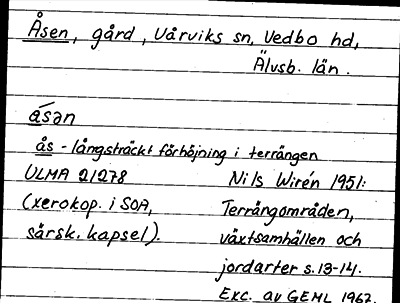 Åsen, gård, Vårviks sn, Vedbo hd,
Älvsb. län.
åsən
ås - långsträckt förhöjning i terrängen
ULMA 21278 Nils Wirén 1951:
(xerokop. i SOA, Terrängområden,
särsk. kapsel). växtsamhällen och
jordarter s. 13-14.
Exc. av GEHL 1967.